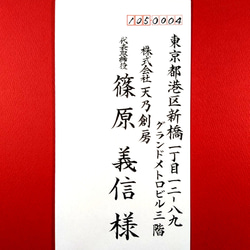 1050004
東京都港区新橋一丁目一二-八九
グランドメトロビル三階
株式会社天乃創房
代表取締役
篠原義信様